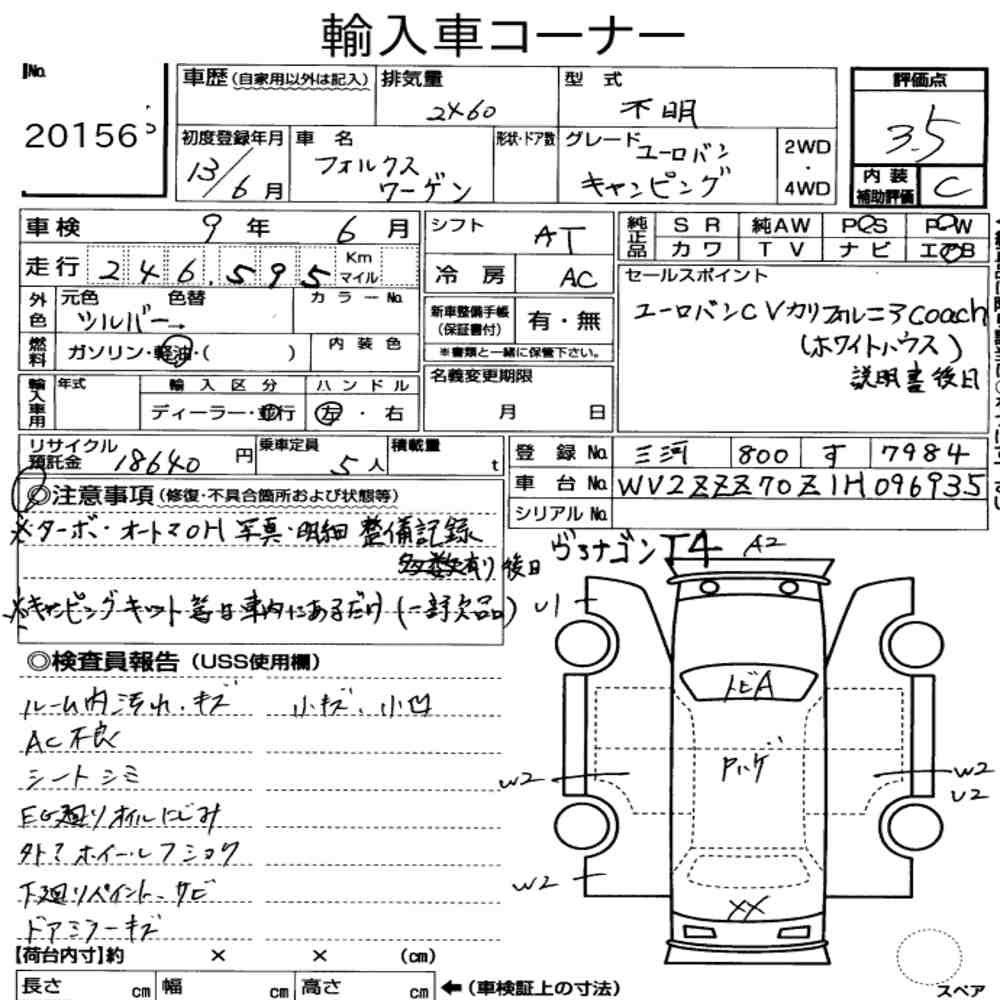 輸入車コーナー
No.
20156
車歴(自家用以外は記入) 排気量 2460 型式 不明
評価点 3.5
初度登録年月 13/6月 車名 フォルクスワーゲン 形状・ドア数 グレード ユーロバン キャンピング 2WD・4WD
内装補助評価 C
車検 9年 6月 シフト AT 純正品 SR 純AW PS PW
カワ TV ナビ エアB
走行 246,595 Km マイル 冷房 AC
セールスポイント
ユーロバンCVカリフォルニアcoach
(ホワイトハウス)
説明書後日
外色 元色 色替 カラーNo.
シルバー→
新車整備手帳(保証書付) 有・無
※書類と一緒に保管下さい。
燃料 ガソリン・軽油・( ) 内装色
輸入車用 年式 輸入区分 ハンドル
ディーラー・並行 左・右
名義変更期限
月 日
リサイクル預託金 18640円 乗車定員 5人 積載量 t
登録No. 三河 800 す 7984
車台No. WV2ZZZ70Z1H096935
シリアルNo.
◎注意事項(修復・不具合箇所および状態等)
※ターボ・オートマOH 写真・明細 整備記録
多数有り後日
※キャンピングキット等は車内にあるだけ(一部欠品)
ヴァナゴンT4
A2
U1
◎検査員報告(USS使用欄)
ルーム内汚れ・キズ 小キズ、小凹
AC不良
シートシミ
EG廻りオイルにじみ
タイヤホイールフショク
下廻りペイント、サビ
ドアミラーキズ
トビA
Pハゲ
W2
W2
U2
W2
XX
【荷台内寸】約 × × (cm)
長さ cm 幅 cm 高さ cm ←(車検証上の寸法)
スペア